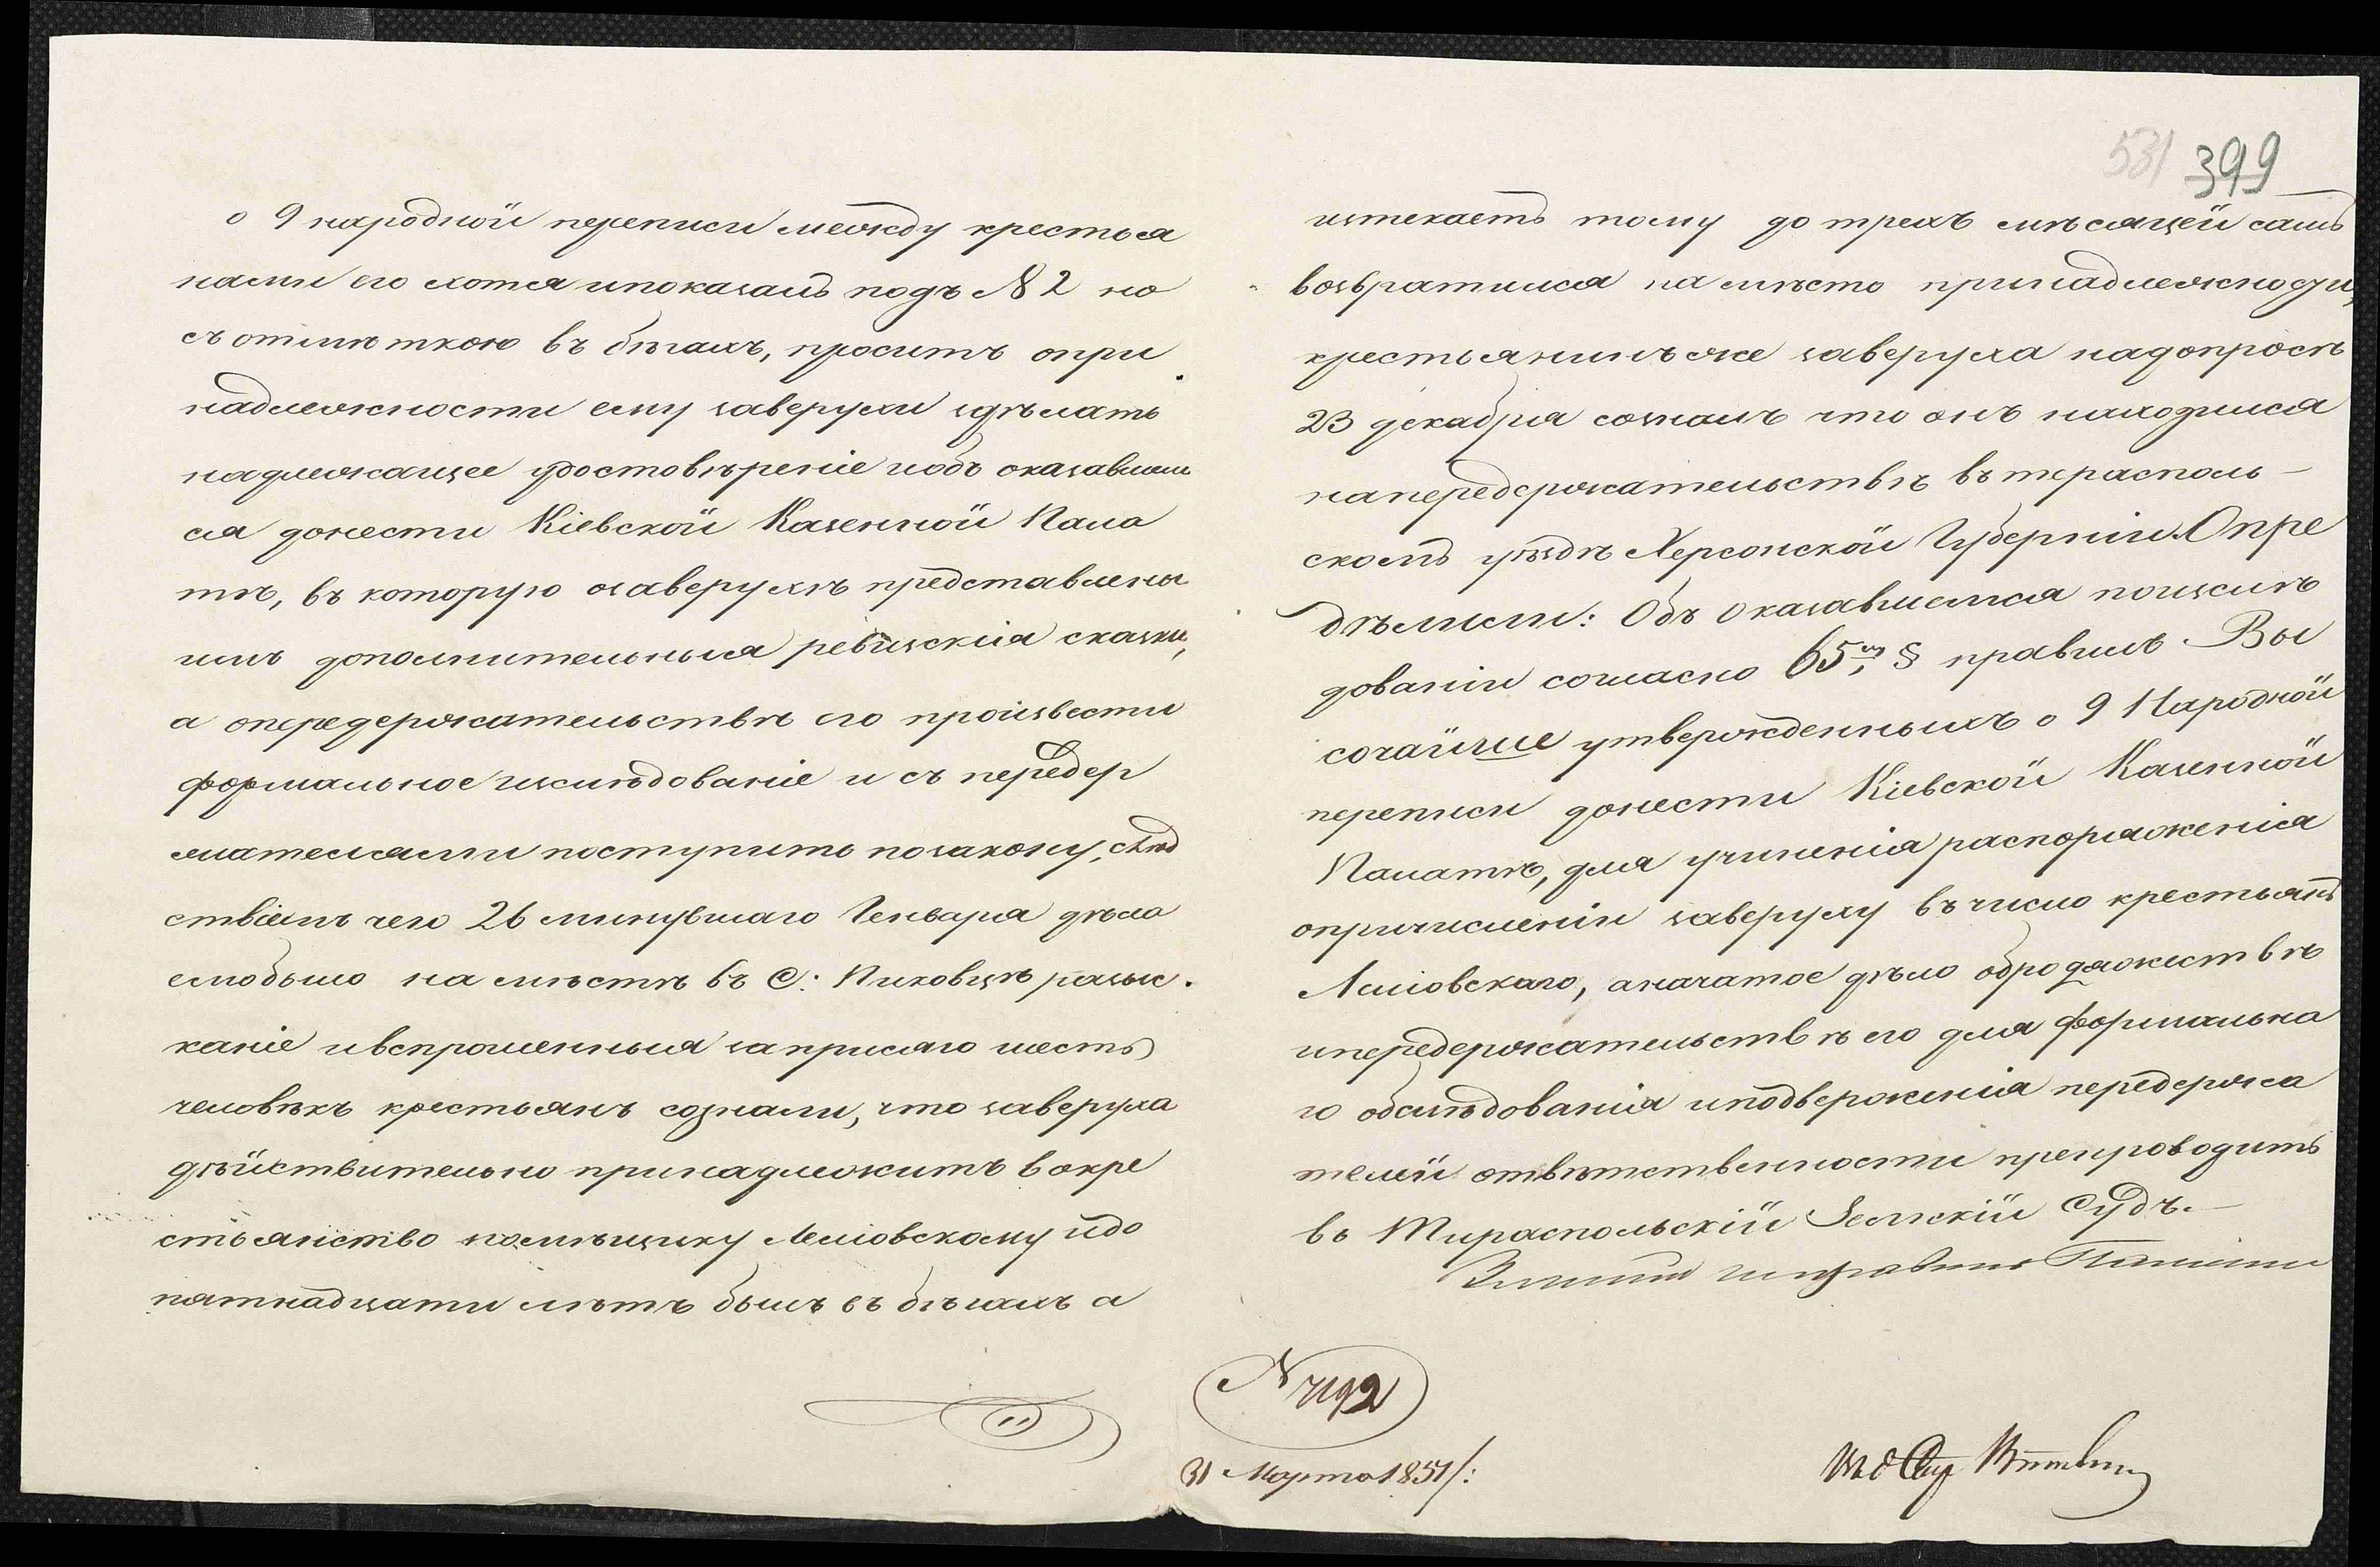 531 399
о 9 народной переписи между крестья
нами его хотя ипоказанъ подъ № 2 но
съ отмѣткою въ бѣгахъ, проситъ опри
надлежности ему заверухи здѣлать
надлежащее удостовѣреніе иобъ оказавшем
ся донести Кіевской Казенной Пала
тѣ, въ которую озаверухѣ представлены
имъ дополнительныя ревизскія сказки,
а опередержательствѣ его произвести
формальное изслѣдованіе и съ передер
жателями поступить позакону, слѣд
ствіемъ чего 26 минувшаго Генваря дѣла
емобыло на мѣстѣ въ С: Пиковцѣ розыс.
каніе ивспрошенныя заприсяго шесть
человѣкъ крестьянъ сознали, что заверуха
дѣйствительно принадлежитъ вокре
стьянство помѣщику Лелiовскому идо
пятнадцати лѣтъ былъ въ бѣгахъ а
истекаетъ тому до трехъ мѣсяцей самъ
возвратился на мѣсто принадлежности,
крестьянинъ же заверуха надопросѣ
23 декабря созналъ что онъ находился
напередержательствѣ въ терасполь-
скомъ уѣздѣ Херсонской Губерніи. Опре
дѣлили: Объ оказавшемся поизслѣ
дованіи согласно 65му § правилъ Вы
сочайше утвержденныхъ о 9 Народной
переписи донести Кіевской Казенной
Палатѣ, для учиненія распоряженія
опричисленіи заверуху въ число крестьянъ
Лелiовскаго, аначатое дѣло обродяжествѣ
ипередержательствѣ его для формальна
го обслѣдованія иподверженія передержа
телей отвѣтственности препроводить
въ Тираспольскій Земскій Судъ.-
Земскій исправникъ
№ 7192
31 Марта 1851/: